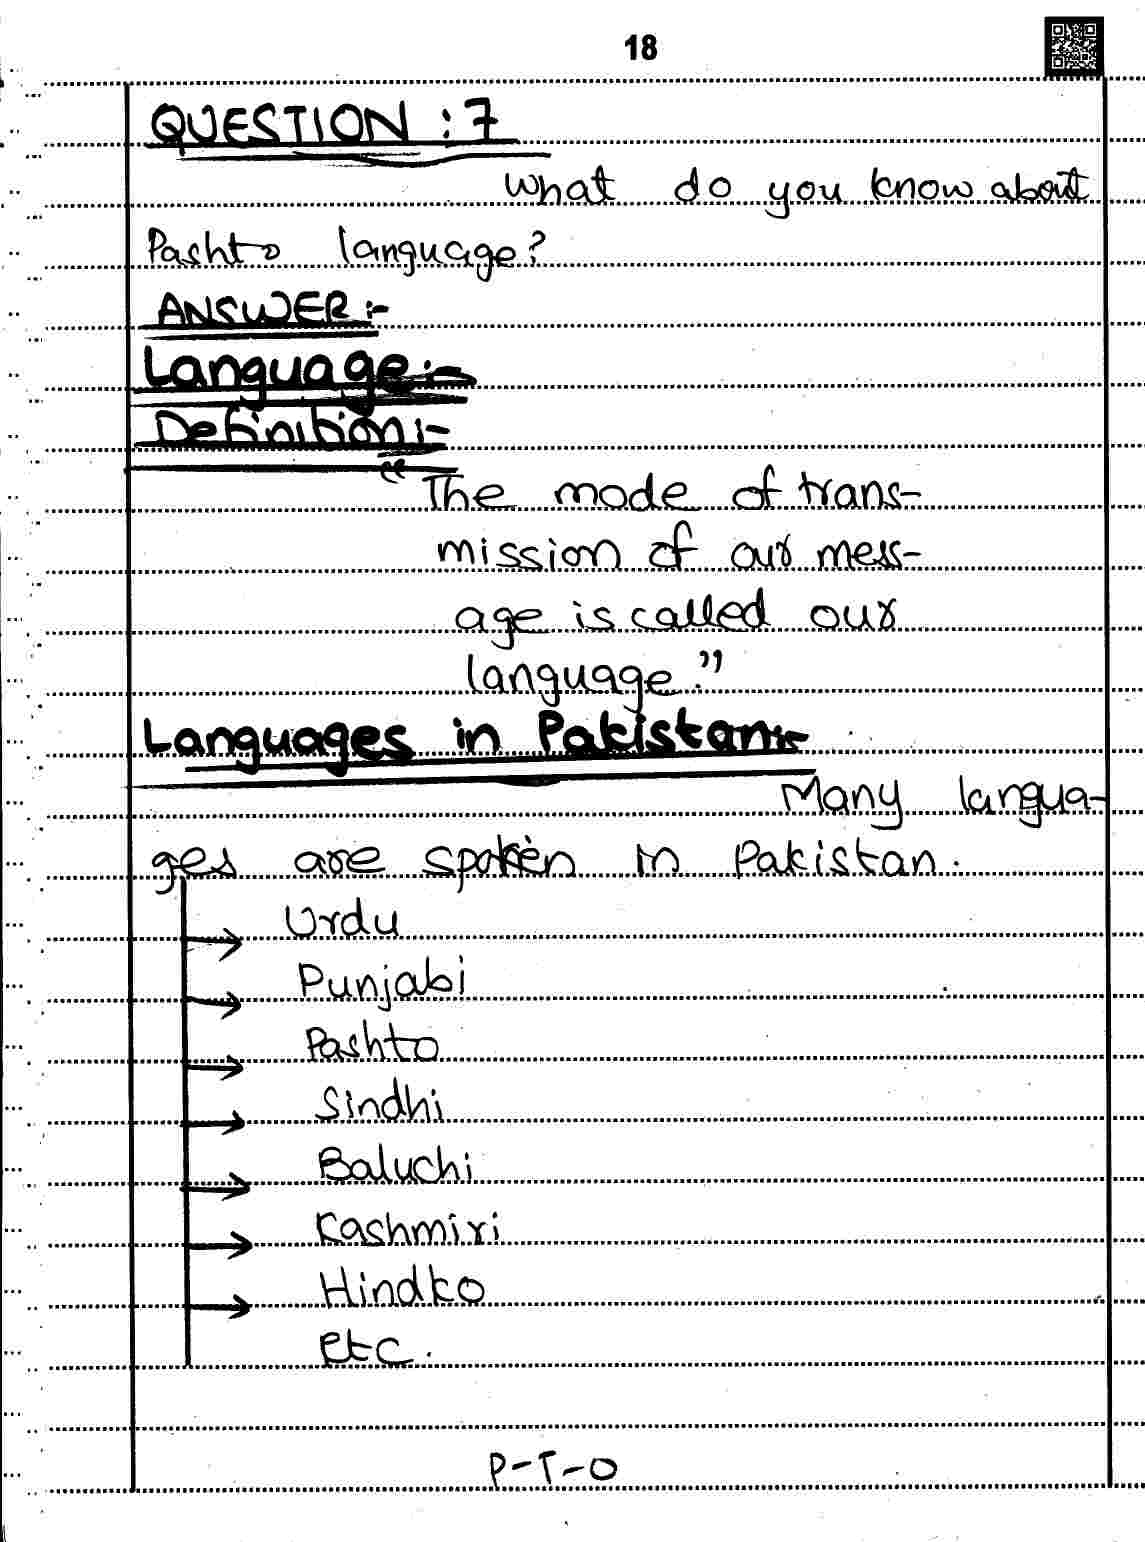 18
QUESTION : 7
What do you know about
Pashto language?
ANSWER :-
Language:-
Definition:-
"The mode of trans-
mission of our mess-
age is called our
language."
Languages in Pakistan:-
Many langua-
ges are spoken in Pakistan.
→ Urdu
→ Punjabi
→ Pashto
→ Sindhi
→ Baluchi
→ Kashmiri
→ Hindko
etc.
P-T-O